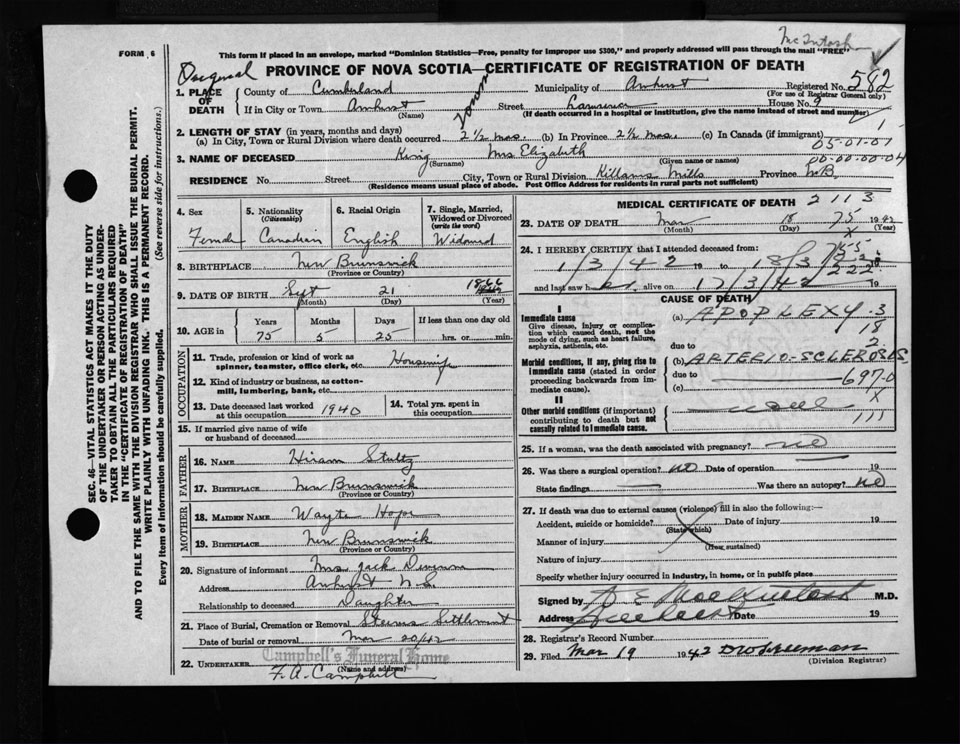 McIntosh
FORM 6
This form if placed in an envelope, marked "Dominion Statistics—Free, penalty for improper use $300," and properly addressed will pass through the mail "FREE"
PROVINCE OF NOVA SCOTIA—CERTIFICATE OF REGISTRATION OF DEATH
1. PLACE OF DEATH County of Cumberland Municipality of Amherst Registered No. 582
(For use of Registrar General only)
If in City or Town Amherst Street Lawrence House No. 9
(Name) (If death occurred in a hospital or institution, give the name instead of street and number)
1
2. LENGTH OF STAY (in years, months and days)
(a) In City, Town or Rural Division where death occurred 2 1/2 mos. (b) In Province 2 1/2 mos. (c) In Canada (if immigrant)
05-01-01
3. NAME OF DECEASED King Mrs Elizabeth
(Surname) (Given name or names)
00-00-00-04
RESIDENCE No. Street City, Town or Rural Division Killams Mills Province N.B.
(Residence means usual place of abode. Post Office Address for residents in rural parts not sufficient)
4. Sex Female
5. Nationality (Citizenship) Canadian
6. Racial Origin English
7. Single, Married, Widowed or Divorced (write the word) Widowed
8. BIRTHPLACE New Brunswick
(Province or Country)
9. DATE OF BIRTH Sept 21 1866
(Month) (Day) (Year)
10. AGE in Years Months Days If less than one day old
75 5 25 hrs. or min.
OCCUPATION
11. Trade, profession or kind of work as spinner, teamster, office clerk, etc. Housewife
12. Kind of industry or business, as cotton-mill, lumbering, bank, etc.
13. Date deceased last worked at this occupation 1940
14. Total yrs. spent in this occupation
15. If married give name of wife or husband of deceased
FATHER
16. NAME Hiram Stultz
17. BIRTHPLACE New Brunswick
(Province or Country)
MOTHER
18. MAIDEN NAME Wayte Hope
19. BIRTHPLACE New Brunswick
(Province or Country)
20. Signature of informant Mrs Jack
Address Amherst N.S.
Relationship to deceased Daughter
21. Place of Burial, Cremation or Removal Steeves Settlement
Date of burial or removal Mar 20/42
Campbell's Funeral Home
22. UNDERTAKER
(Name and address)
F. A. Campbell
MEDICAL CERTIFICATE OF DEATH 2113
23. DATE OF DEATH Mar 18 75 1942
(Month) (Day) (Year)
24. I HEREBY CERTIFY that I attended deceased from:
1/3/42 19 to 18/3/ 19
and last saw h er alive on 17/3/42 222 19
CAUSE OF DEATH
I
Immediate cause
Give disease, injury or complication which caused death, not the mode of dying, such as heart failure, asphyxia, asthenia, etc.
(a) APOPLEXY 3
118
due to 2
Morbid conditions, if any, giving rise to immediate cause (stated in order proceeding backwards from immediate cause).
(b) ARTERIO-SCLEROSIS
due to
(c) 697-0
II
X
Other morbid conditions (if important) contributing to death but not causally related to immediate cause.
111
25. If a woman, was the death associated with pregnancy? no
26. Was there a surgical operation? no Date of operation 19
State findings Was there an autopsy? no
27. If death was due to external causes (violence) fill in also the following:—
Accident, suicide or homicide? Date of injury 19
(State which)
Manner of injury
(How sustained)
Nature of injury
Specify whether injury occurred in industry, in home, or in public place
Signed by M.D.
Address Amherst Date 19
28. Registrar's Record Number
29. Filed Mar 19 1942
(Division Registrar)
SEC. 46—VITAL STATISTICS ACT MAKES IT THE DUTY
OF THE UNDERTAKER OR PERSON ACTING AS UNDER-
TAKER TO OBTAIN ALL THE PARTICULARS REQUIRED
IN THE "CERTIFICATE OF REGISTRATION OF DEATH"
AND TO FILE THE SAME WITH THE DIVISION REGISTRAR WHO SHALL ISSUE THE BURIAL PERMIT.
WRITE PLAINLY WITH UNFADING INK. THIS IS A PERMANENT RECORD.
Every item of information should be carefully supplied. (See reverse side for instructions.)